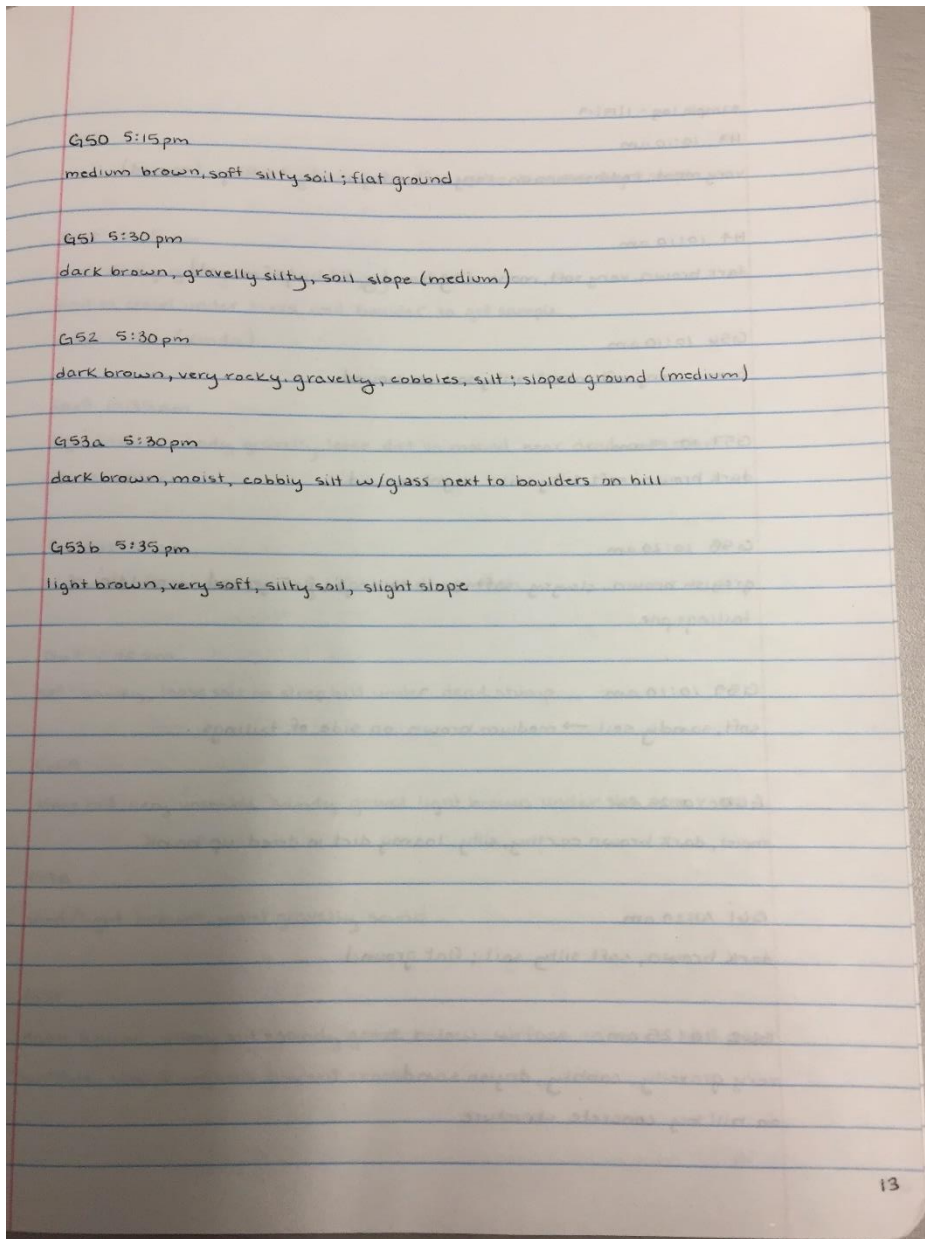 G50 5:15pm
medium brown, soft silty soil; flat ground
G51 5:30 pm
dark brown, gravelly silty, soil slope (medium)
G52 5:30pm
dark brown, very rocky. gravelly, cobbles, silt; sloped ground (medium)
G53a 5:30pm
dark brown, moist, cobbly silt w/glass next to boulders on hill
G53b 5:35pm
light brown, very soft, silty soil, slight slope
13